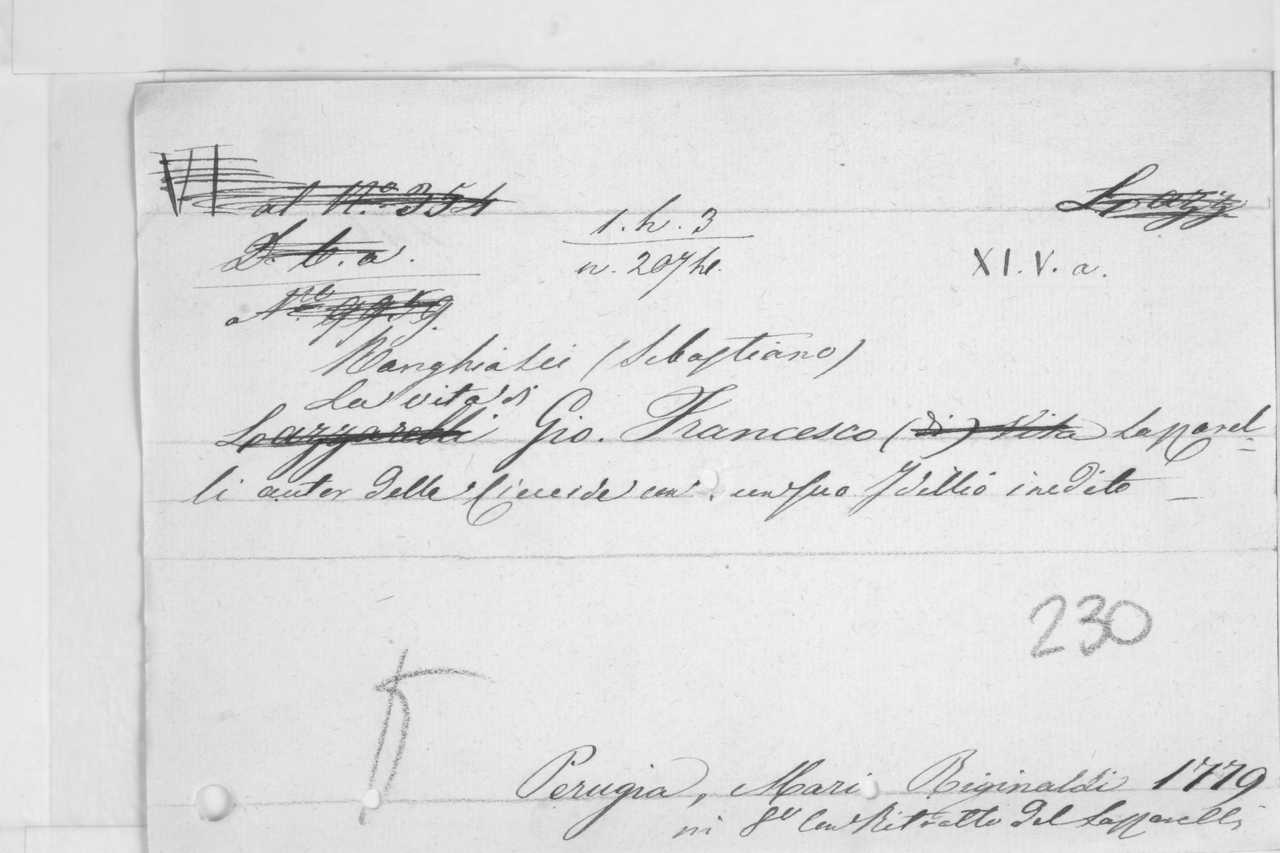 VI al N.º 354
Lazz
D. b. a.
1. h. 3
n. 207 hl.
XI. V. a.
N.º 9959
Ranghiasci (Sebastiano)
La vita di
Lazzarelli Gio. Francesco (di) Vita Lazzarel=
li autor della Cicceide con un suo Idillio inedito
230
Perugia, Mario Riginaldi 1779
in 8º con Ritratto del Lazzarelli